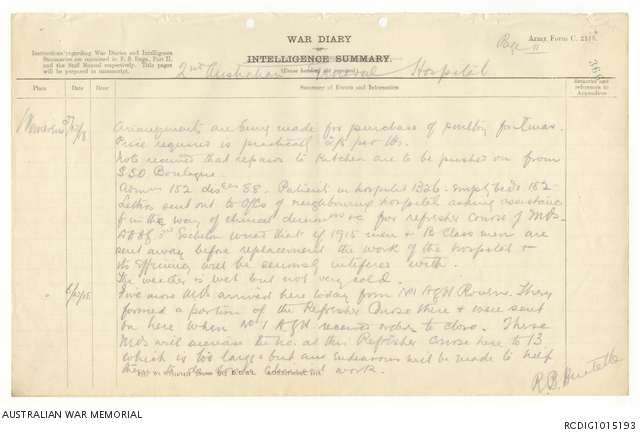 WAR DIARY
or
INTELLIGENCE SUMMARY.
(Erase heading not required)
Army Form C. 2118.
Page 11
Instructions regarding War Diaries and Intelligence
Summaries are contained in F. S. Regs., Part II.
and the Staff Manual respectively. Title pages
will be prepared in manuscript.
2nd Australian General Hospital
Place
Date
Hour
Summary of Events and Information
Remarks and
references to
Appendices
Arrangements are being made for purchase of poultry for Xmas.
Price required is practically 2/- per lb.
Note received that repairs to kitchen are to be pushed on from
Boulogne.
Admns 152 dis 88. Patients in hospital 1326. empty beds 182.
Letters sent out to Offcs of neighbouring hospitals asking assistance
in the way of clinical for refresher course of MOs.
3rd Echelon that if 1915 men & B Class men are
sent away before replacement the work of the hospital &
its efficiency will be seriously interfered with.
The weather is wet but not very cold.
" 6/12/18
Five more MOs arrived here today from No 1 AGH Rouen. They
formed a portion of the Refresher Course there & were sent
on here when No 1 AGH received order to close. These
MOs will increase the no. at this Refresher Course here to 13
which is too large but an endeavour will be made to help
them to do work.
AUSTRALIAN WAR MEMORIAL
RCDIG1015193